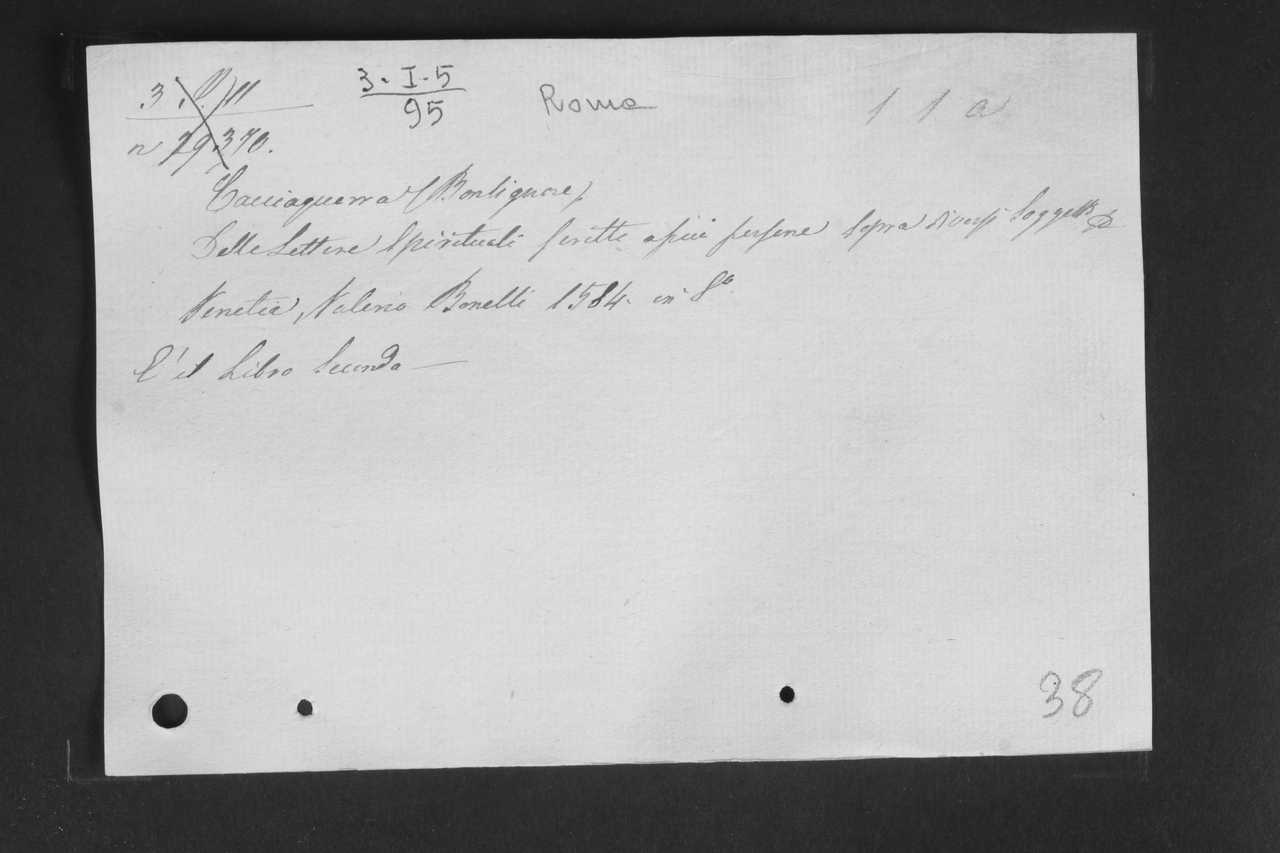 3-I-5
95
Roma
1 1 a
n 29.370.
Cacciaguerra (Bonsignore)
Delle Lettere Spirituali scritte a più persone sopra diversi Soggetti
Venetia, Valerio Bonelli 1584. in 8º
E' il Libro Secondo —
38